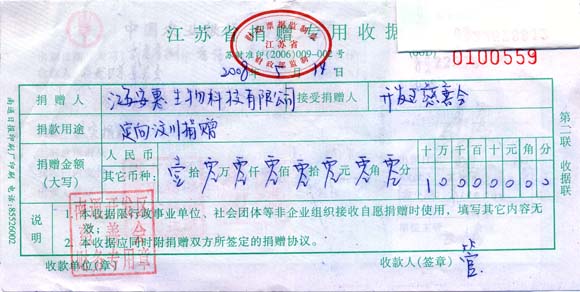 江苏省捐赠专用收据
财政票据监制章
江苏省
财政部监制
苏财准印(2006)009-002号
0100559
2008年5月19日
捐赠人 江苏安惠生物科技有限公司 接受捐赠人 开发区慈善会
捐款用途 定向汶川捐赠
捐赠金额(大写) 人民币 其它币种: 壹拾零万零仟零佰零拾零元零角零分
十万千百十元角分
10000000
说明
1.本收据限行政事业单位、社会团体等非企业组织接收自愿捐赠时使用,填写其它内容无效;
2.本收据应同时附捐赠双方所签定的捐赠协议。
收款单位(章) 收款人(签章) 管
南通开发区
慈善会
财务专用章
第二联 收据联
南通日报印刷厂印刷 电话:85526002